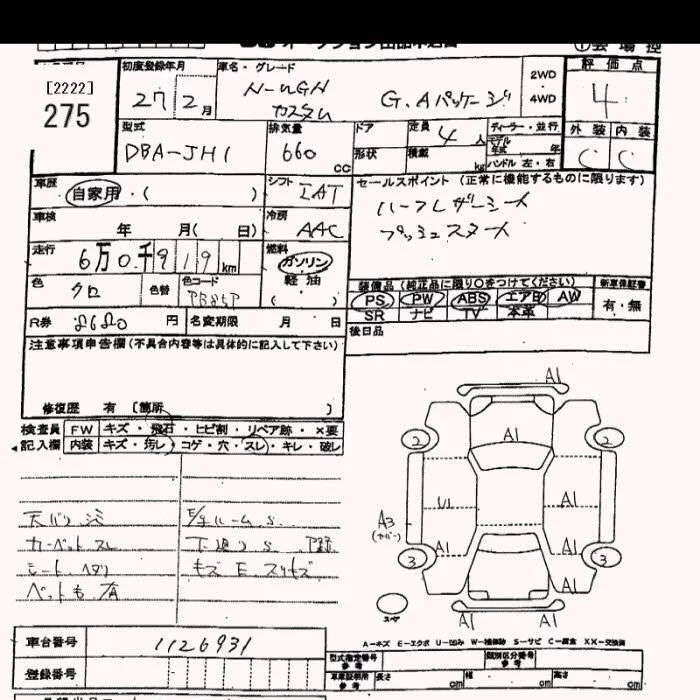 オークション出品申込書
①会場控
[2222]
275
初度登録年月
27 2月
車名・グレード
N-WGN
カスタム
G.Aパッケージ
2WD
4WD
評価点
4
外装 内装
C C
型式
DBA-JH1
排気量
660 cc
ドア
形状
定員 4人
積載 kg
ディーラー・並行
モデル年式 年
ハンドル 左・右
車歴
自家用・( )
シフト IAT
セールスポイント (正常に機能するものに限ります)
ハーフレザーシート
プッシュスタート
車検
年 月( 日)
冷房 AAC
走行
6万0千919km
燃料
ガソリン
軽油
( )
色 クロ
色替
色コード
装備品 (純正品に限り○をつけてください)
新車保証書
PS PW ABS エアB AW
有・無
SR ナビ TV 本革
R券 円
名変期限 月 日
後日品
注意事項申告欄 (不具合内容等は具体的に記入して下さい)
修復歴 有 [箇所 ]
検査員
記入欄
FW キズ・飛石・ヒビ割・リペア跡・×要
内装 キズ・汚レ・コゲ・穴・スレ・キレ・破レ
天バリ シミ
カーペット スレ
シート ヘタリ
ペット毛 有
E/gルーム S.
下廻り S.
キズ E スリキズ
A1
2 A1 2
U1 A1
A3
(カバー)
A1 A1
3 3
A1
A1 A1
スペア
A-キズ E-エクボ U-凹み W-補修跡 S-サビ C-腐食 XX-交換済
車台番号 1126931
登録番号
型式指定番号 参考
類別区分番号 参考
車庫証明用 参考 長さ cm 幅 cm 高さ cm